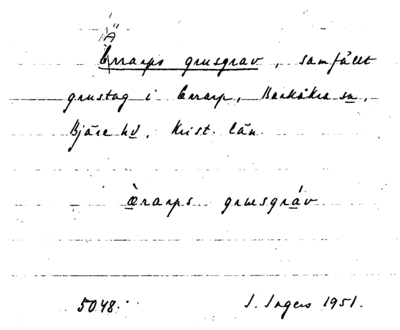 Ä
Errarps grusgrav, samfällt
grustag i Errarp, Barkåkra sn,
Bjäre hd, Krist. län.
ärarps grusgráv
5048. I. Ingers 1951.